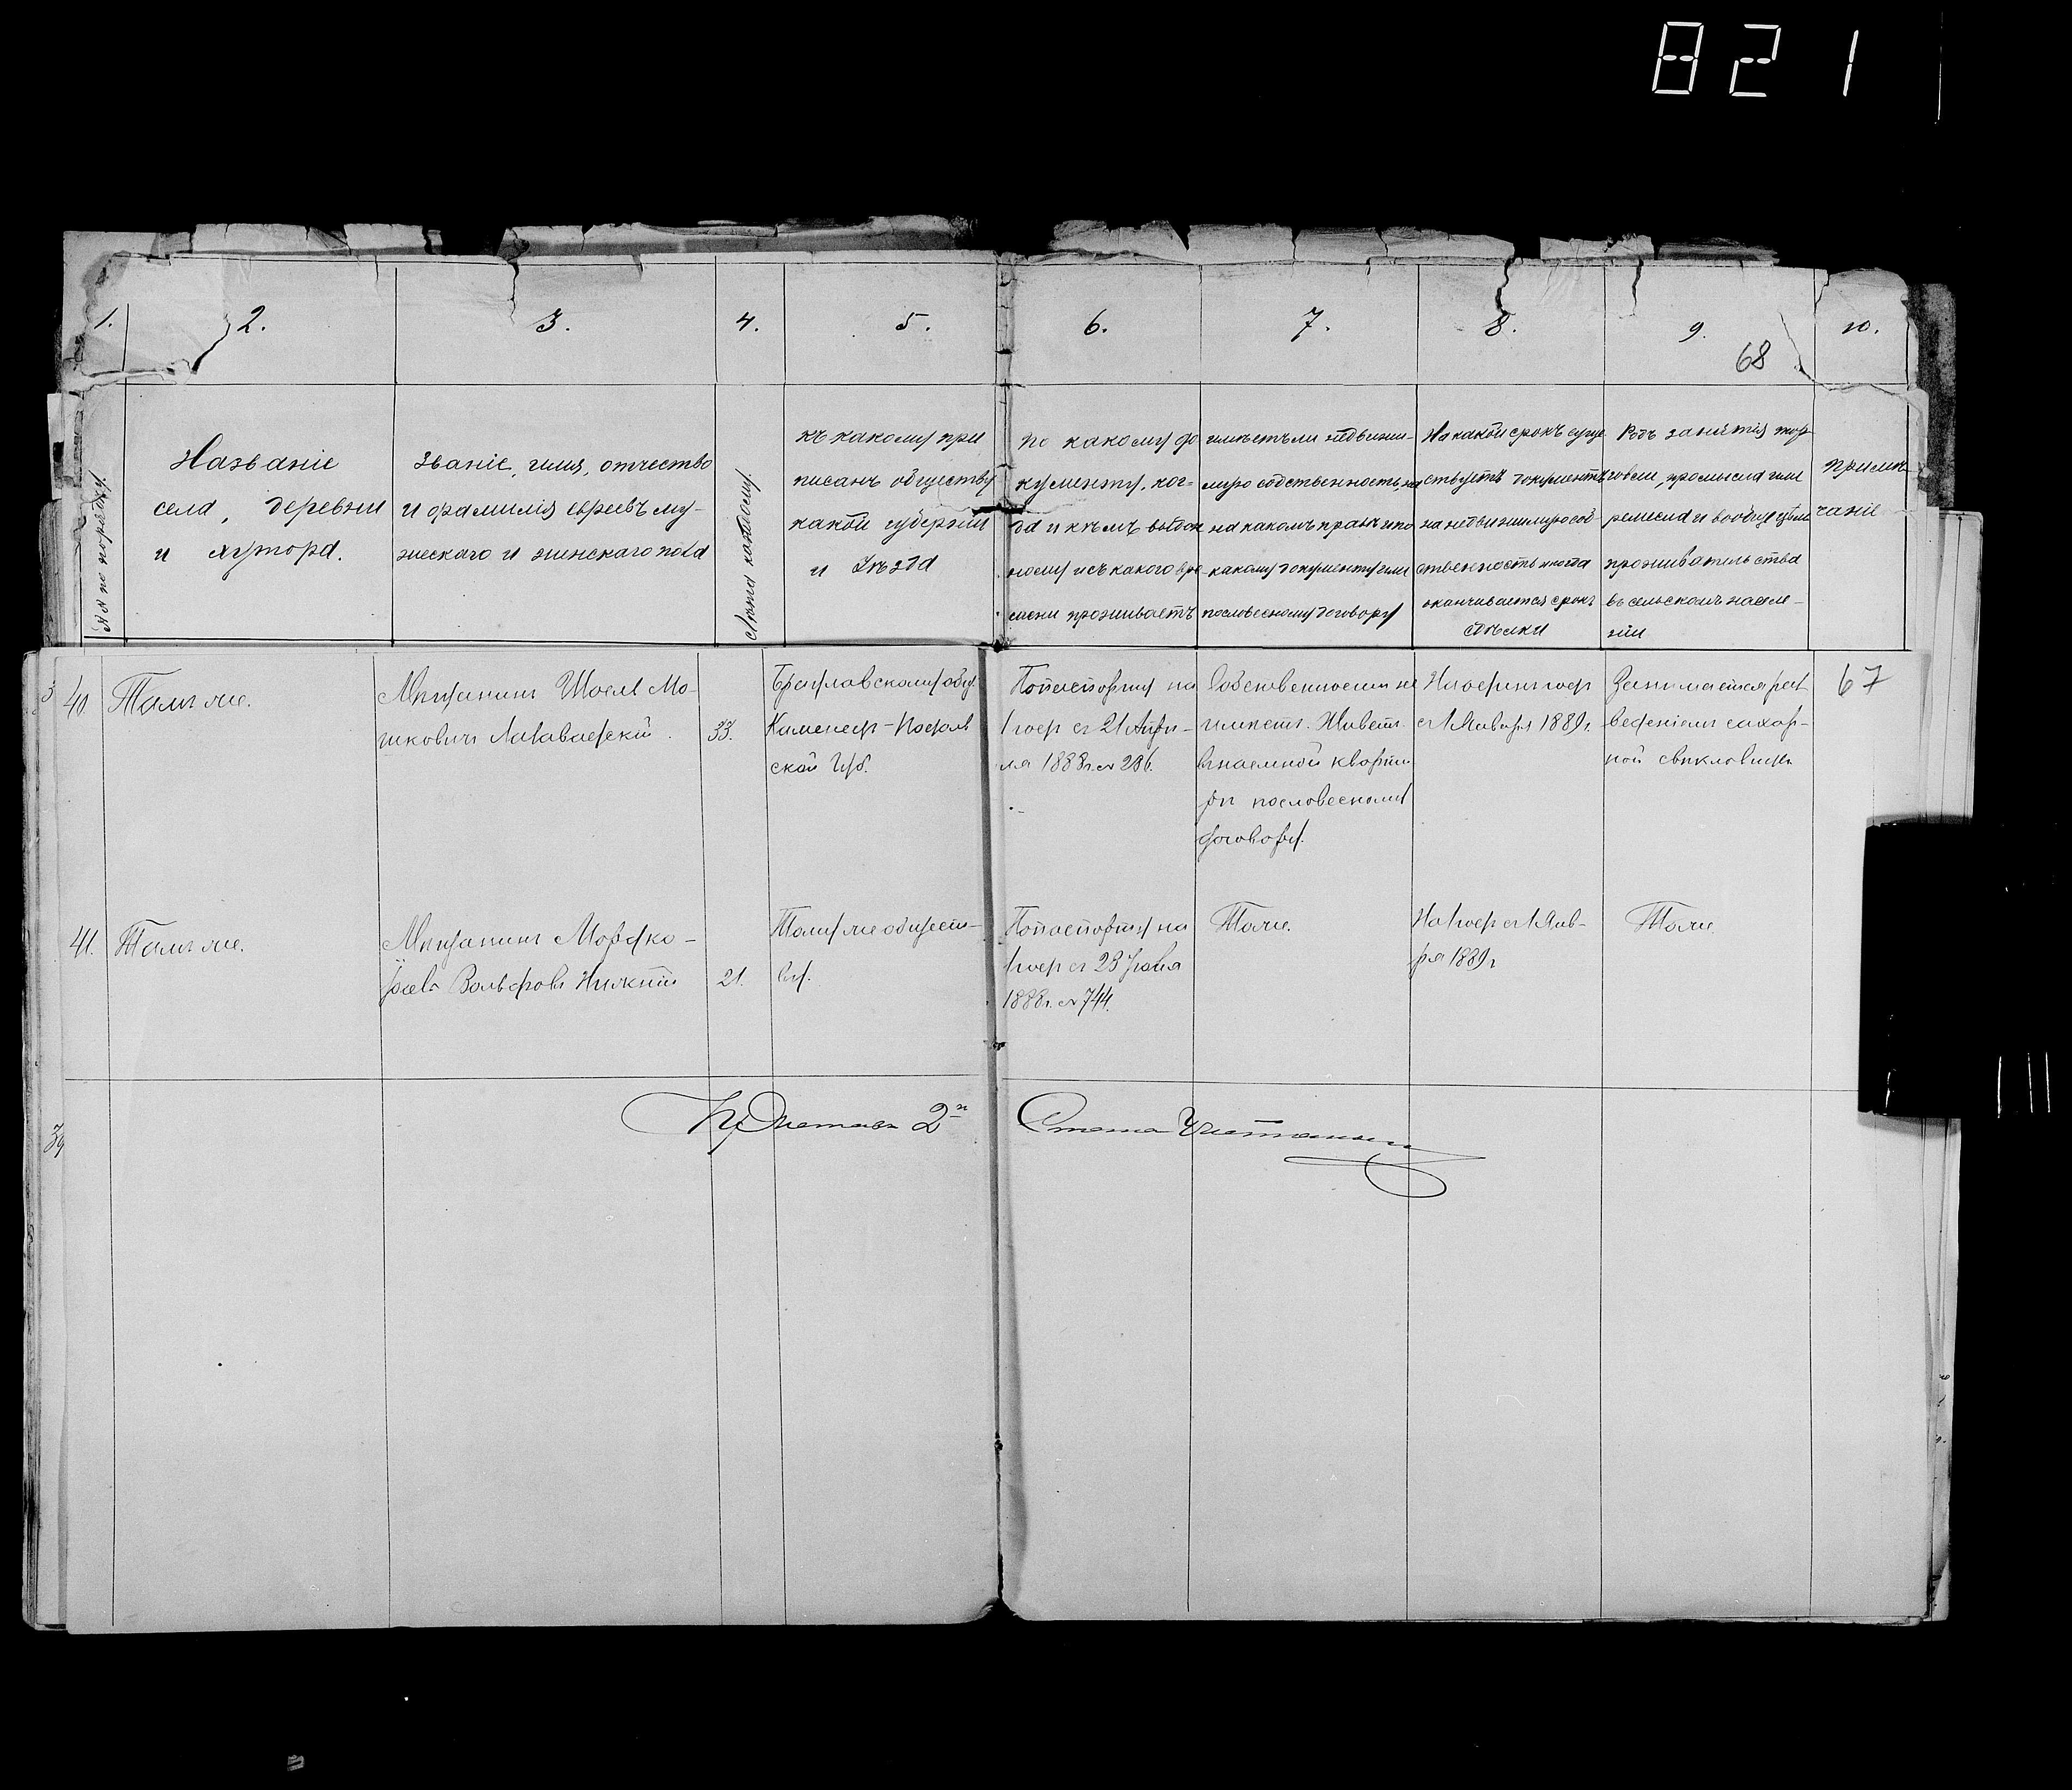 821
1. 2. 3. 4. 5. 6. 7. 8. 9. 10.
68
№№ по порядку.
Названіе
села, деревни
и хутора.
Званіе, имя, отчество
и фамилія евреевъ му-
жескаго и женскаго пола
Лѣта каждому.
къ какому при
писанъ обществу
какой губерніи
и уѣзда
По какому до
кументу, ког-
да и кѣмъ выдан
ному и съ какого вре
мени проживаетъ
имѣетъ ли недвижи-
мую собственность, на
на какомъ правѣ и по
какому документу или
пословесному договору
На какой срокъ суще
ствуетъ документъ
на недвижимую соб-
ственность и когда
оканчивается срокъ
сдѣлки
Родъ занятія тор
говли, промысла или
ремесла и вообще цѣли
проживательства
въ сельскомъ населе-
ніи
Примѣ
чаніе
40
Тамъ же.
Мѣщанинъ Шоель Мо-
шковичъ
33.
Брацлавскому общ
Каменец-Подоль
ской Губ.
По паспорту на
1 годъ съ 21 Апрѣ-
ля 1888 г. № 286.
Собственности не
имѣетъ. Живетъ
въ наемной кварти
рѣ пословесному
договору.
На годъ
съ 1 Января 1889 г.
Занимается раз
веденіемъ сахар-
ной свѣкловицы
67
41.
Тамъ же.
Мѣщанинъ Мордко-
Вольфовъ
21.
Тому же общест-
ву.
По паспорту на
1 годъ съ 23
1888 г. № 744.
Тоже.
На 1 годъ съ 1 Янв-
ря 1889 г
Тоже.
39
Приставъ 2го Стана